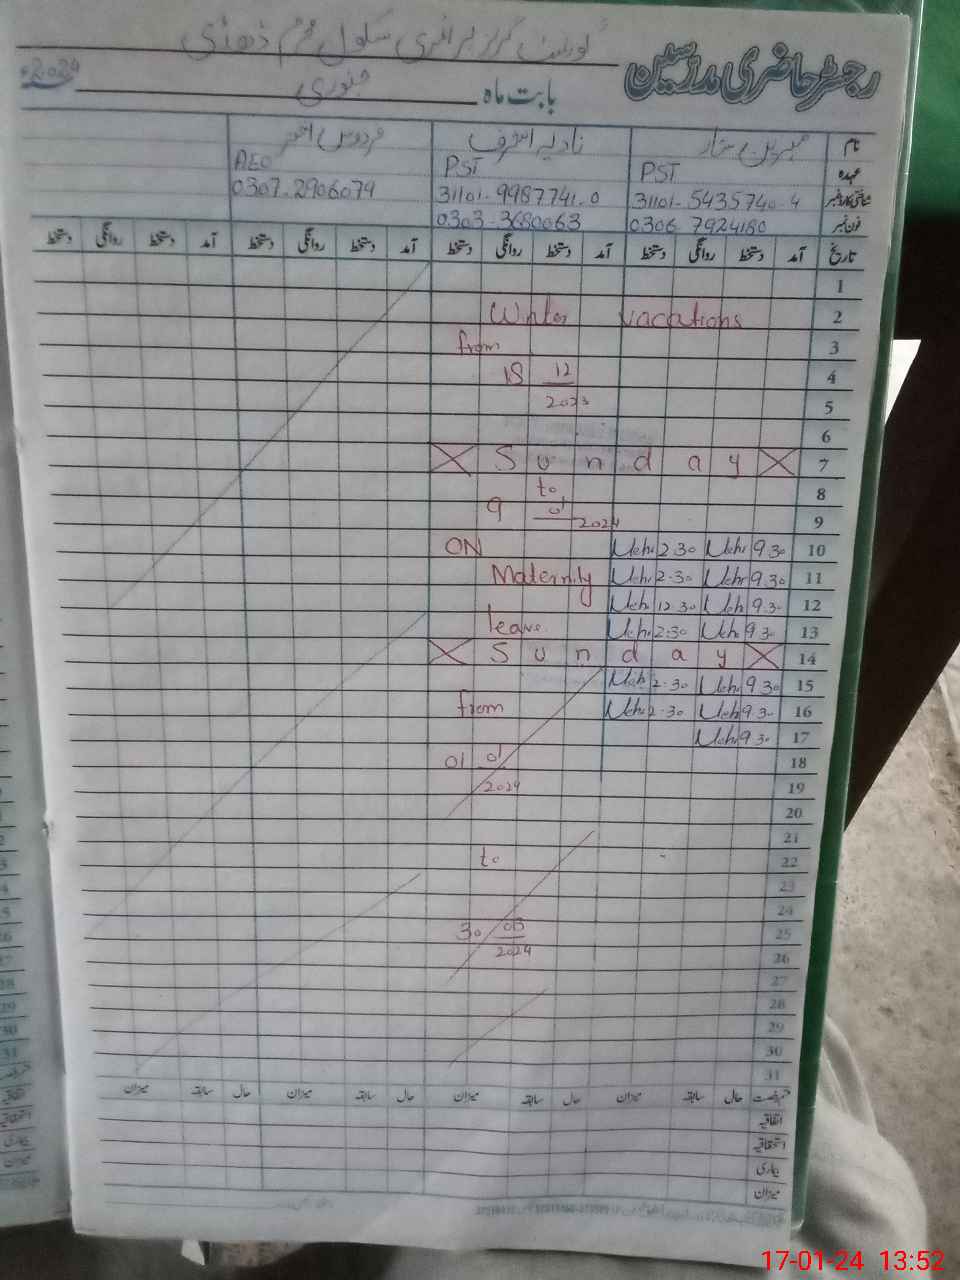 گورنمنٹ گرلز پرائمری سکول
رجسٹر حاضری مدرسین
بابت ماہ جنوری 2024ء
نام نادیہ اشرف فردوس
عہدہ PST PST AEO
شناختی کارڈ نمبر 31101-5435740-4 31101-9987741-0 0307-2906079
فون نمبر 0306 7924180 0303-3680063
تاریخ آمد دستخط روانگی دستخط آمد دستخط روانگی دستخط آمد دستخط روانگی دستخط آمد دستخط روانگی دستخط
1
Winter vacations 2
from 3
18 12 4
2023 5
6
Sunday 7
to 8
9 01 2024 9
ON 2.30 9.30 10
Maternity 2.30 9.30 11
12.30 9.30 12
leave. 2.30 9.30 13
Sunday 14
2.30 9.30 15
from 2.30 9.30 16
9.30 17
01 01 18
2024 19
20
21
to 22
23
24
30 03 25
2024 26
27
28
29
30
31
حال سابقہ میزان حال سابقہ میزان حال سابقہ میزان حال سابقہ میزان
اتفاقیہ
استحقاقیہ
بیماری
میزان
17-01-24 13:52